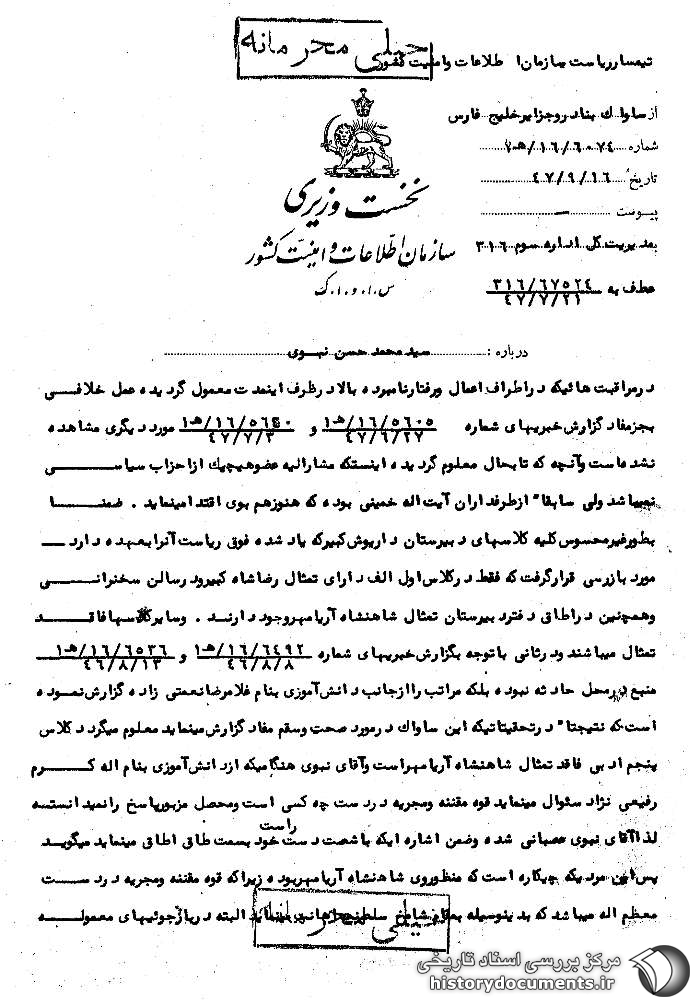 خیلی محرمانه
تیمسار ریاست سازمان اطلاعات و امنیت کشور
از ساواک بنادر و جزایر خلیج فارس
شماره ۷۰هـ/۱۶/۶۰۷۴
تاریخ ۴۷/۹/۱۶
پیوست —
بمدیریت کل اداره سوم ۳۱۶
عطف به ۳۱۶/۶۷۵۲۴
۴۷/۷/۲۱
نخست وزیری
سازمان اطلاعات و امنیت کشور
س.ا.و.ا.ک
درباره : سید محمد حسن نبوی
در مراقبت هائیکه در اطراف اعمال و رفتار نامبرده بالا در ظرف اینمدت معمول گردیده عمل خلافی
بجز مفاد گزارش خبریهای شماره ۵۶۰۵/۱۶/هـ۱ ۴۷/۶/۲۷ و ۴۷/۷/۳ مورد دیگری مشاهده
نشده است و آنچه که تا بحال معلوم گردیده اینستکه مشارالیه عضو هیچیک از احزاب سیاسی
نمیباشد ولی سابقاً از طرفداران آیت اله خمینی بوده که هنوز هم بوی اقتدا مینماید . ضمناً
بطور غیر محسوس کلیه کلاسهای دبیرستان داریوش کبیر که یاد شده فوق ریاست آنرا بعهده دارد
مورد بازرسی قرار گرفت که فقط در کلاس اول الف دارای تمثال رضا شاه کبیر و در سالن سخنرانی
و همچنین در اطاق دفتر دبیرستان تمثال شاهنشاه آریامهر وجود دارند . و سایر کلاسها فاقد
تمثال میباشند و در ثانی با توجه بگزارش خبریهای شماره ۶۴۹۲/۱۶/هـ۱ ۴۶/۸/۸ و ۶۵۳۶/۱۶/هـ۱ ۴۶/۸/۱۳
منبع در محل حادثه نبوده بلکه مراتب را از جانب دانش آموزی بنام غلامرضا نعمتی زاده گزارش نموده
است که نتیجتاً در تحقیقاتیکه این ساواک در مورد صحت و سقم مفاد گزارش مینماید معلوم میگردد کلاس
پنجم ادبی فاقد تمثال شاهنشاه آریامهر است و آقای نبوی هنگامیکه از دانش آموزی بنام اله کرم
رفیعی نژاد سئوال مینماید قوه مقننه و مجریه در دست چه کسی است و محصل مزبور پاسخ را نمیدانسته
لذا آقای نبوی عصبانی شده و ضمن اشاره ایکه با شصت دست راست خود بسمت طاق اطاق مینماید میگوید
پس این مردیکه چیکاره است که منظور وی شاهنشاه آریامهر بوده زیرا که قوه مقننه و مجریه در دست
معظم اله میباشد که بدینوسیله بمقام شامخ سلطنت اهانت مینماید البته در بازجوئیهای معموله
خیلی محرمانه
مرکز بررسی اسناد تاریخی
historydocuments.ir